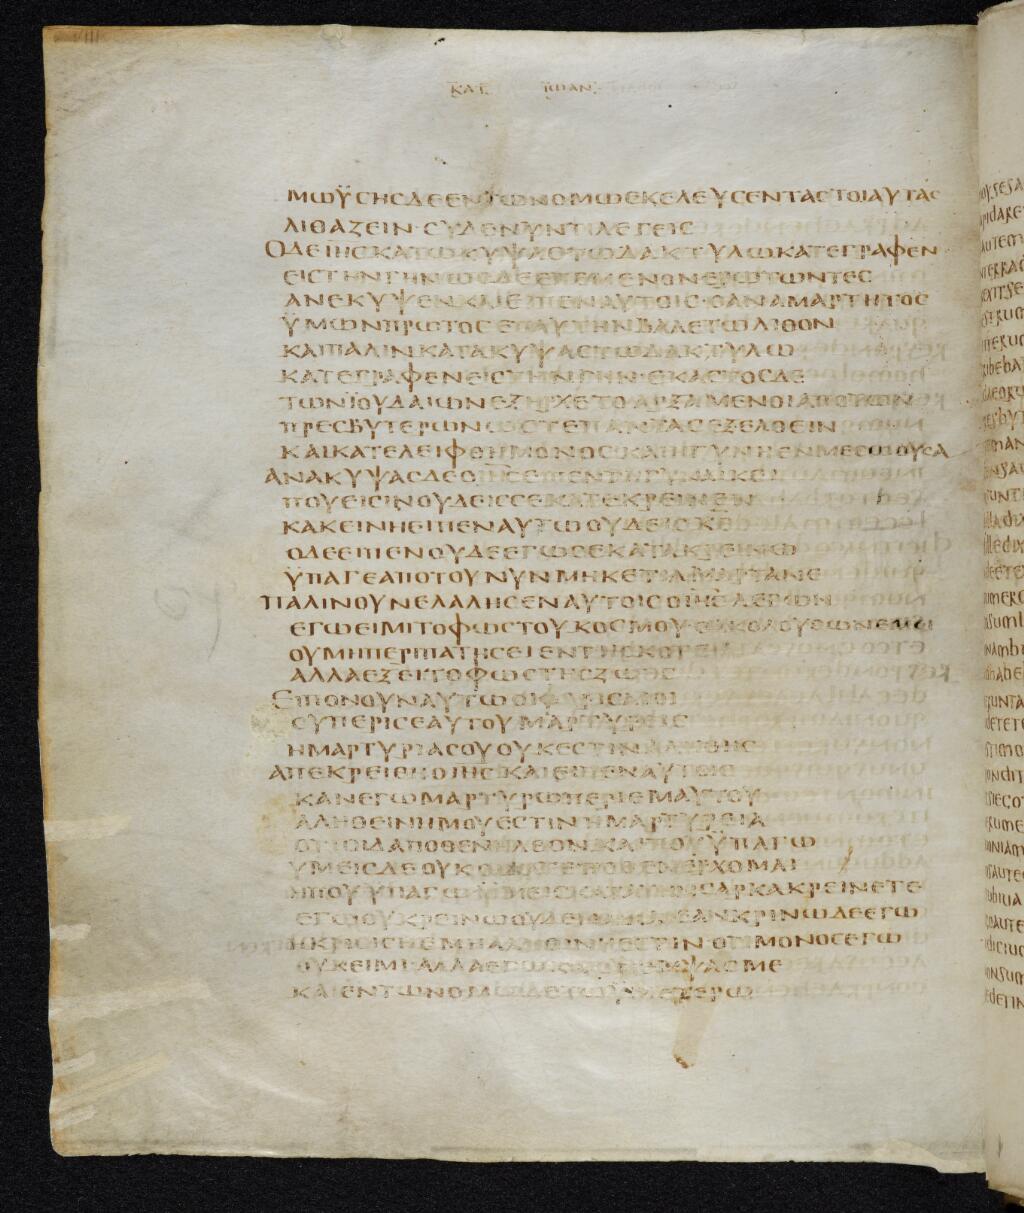 VIII
ΚΑΤ ΙΩΑΝ
ΜΩΫΣΗΣΔΕΕΝΤΩΝΟΜΩΕΚΕΛΕΥΣΕΝΤΑΣΤΟΙΑΥΤΑΣ
ΛΙΘΑΖΕΙΝ·ΣΥΔΕΝΥΝΤΙΛΕΓΕΙΣ
ΟΔΕΙΗΣΚΑΤΩΚΥΨΑΣΤΩΔΑΚΤΥΛΩΚΑΤΕΓΡΑΦΕΝ
ΕΙΣΤΗΝΓΗΝΩΣΔΕΕΠΕΜΕΝΟΝΕΡΩΤΩΝΤΕΣ
ΑΝΕΚΥΨΕΝΚΑΙΕΙΠΕΝΑΥΤΟΙΣ·ΟΑΝΑΜΑΡΤΗΤΟΣ
ΫΜΩΝΠΡΩΤΟΣΕΠΑΥΤΗΝΒΑΛΕΤΩΛΙΘΟΝ
ΚΑΙΠΑΛΙΝΚΑΤΑΚΥΨΑΣΤΩΔΑΚΤΥΛΩ
ΚΑΤΕΓΡΑΦΕΝΕΙΣΤΗΝΓΗΝ·ΕΚΑΣΤΟΣΔΕ
ΤΩΝΪΟΥΔΑΙΩΝΕΞΗΡΧΕΤΟΑΡΞΑΜΕΝΟΙΑΠΟΤΩΝ
ΠΡΕΣΒΥΤΕΡΩΝΩΣΤΕΠΑΝΤΑΣΕΞΕΛΘΕΙΝ
ΚΑΙΚΑΤΕΛΕΙΦΘΗΜΟΝΟΣΚΑΙΗΓΥΝΗΕΝΜΕΣΩΟΥΣΑ
ΑΝΑΚΥΨΑΣΔΕΟΙΗΣΕΙΠΕΝΤΗΓΥΝΑΙΚΕΙ
ΠΟΥΕΙΣΙΝΟΥΔΕΙΣΣΕΚΑΤΕΚΡΕΙΝΕΝ
ΚΑΚΕΙΝΗΕΙΠΕΝΑΥΤΩΟΥΔΕΙΣΚΕ
ΟΔΕΕΙΠΕΝΟΥΔΕΕΓΩΣΕΚΑΤΑΚΡΕΙΝΩ
ΫΠΑΓΕΑΠΟΤΟΥΝΥΝΜΗΚΕΤΙΑΜΑΡΤΑΝΕ
ΠΑΛΙΝΟΥΝΕΛΑΛΗΣΕΝΑΥΤΟΙΣΟΙΗΣΛΕΓΩΝ
ΕΓΩΕΙΜΙΤΟΦΩΣΤΟΥΚΟΣΜΟΥ·ΟΑΚΟΛΟΥΘΩΝΕΜΟΙ
ΟΥΜΗΠΕΡΙΠΑΤΗΣΕΙΕΝΤΗΣΚΟΤΕΙΑ
ΑΛΛΑΕΞΕΙΤΟΦΩΣΤΗΣΖΩΗΣ
ΕΙΠΟΝΟΥΝΑΥΤΩΟΙΦΑΡΙΣΑΙΟΙ
ΣΥΠΕΡΙΣΕΑΥΤΟΥΜΑΡΤΥΡΕΙΣ
ΗΜΑΡΤΥΡΙΑΣΟΥΟΥΚΕΣΤΙΝΑΛΗΘΗΣ
ΑΠΕΚΡΕΙΘΗΟΙΗΣΚΑΙΕΙΠΕΝΑΥΤΟΙΣ
ΚΑΝΕΓΩΜΑΡΤΥΡΩΠΕΡΙΕΜΑΥΤΟΥ
ΑΛΗΘΕΙΝΗΜΟΥΕΣΤΙΝΗΜΑΡΤΥΡΕΙΑ
ΟΤΙΟΙΔΑΠΟΘΕΝΗΛΘΟΝΚΑΙΠΟΥΫΠΑΓΩ
ΥΜΕΙΣΔΕΟΥΚΟΙΔΑΤΕΠΟΘΕΝΕΡΧΟΜΑΙ
ΗΠΟΥΫΠΑΓΩΫΜΕΙΣΚΑΤΑΤΗΝΣΑΡΚΑΚΡΕΙΝΕΤΕ
ΕΓΩΟΥΚΡΕΙΝΩΟΥΔΕΝΑΚΑΙΕΑΝΚΡΙΝΩΔΕΕΓΩ
ΗΚΡΙΣΙΣΗΕΜΗΑΛΗΘΙΝΗΕΣΤΙΝ·ΟΤΙΜΟΝΟΣΕΓΩ
ΟΥΚΕΙΜΙ·ΑΛΛΑΕΓΩΚΑΙΟΠΕΜΨΑΣΜΕ
ΚΑΙΕΝΤΩΝΟΜΩΔΕΤΩΫΜΕΤΕΡΩ